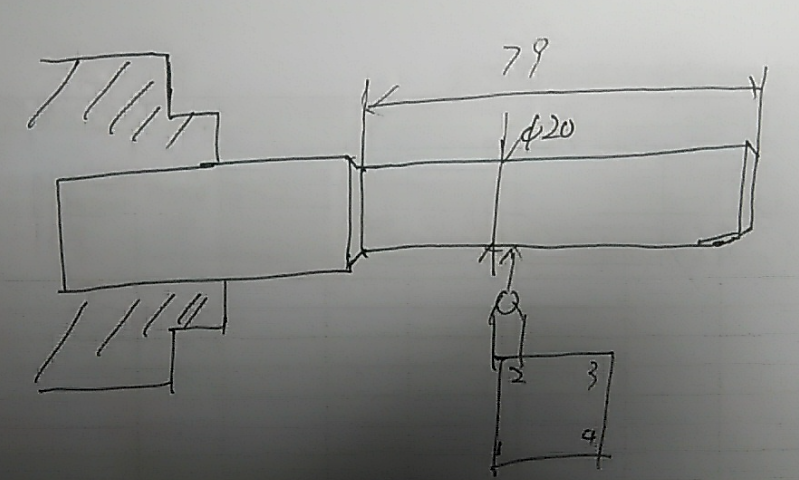 79
φ20
2 3
4